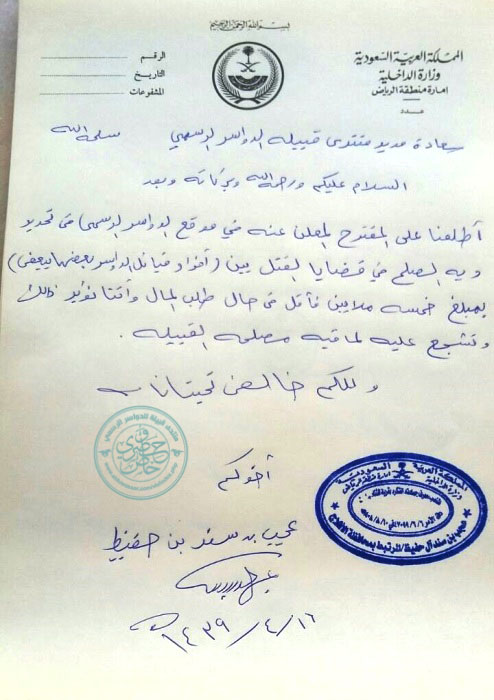 بسم الله الرحمن الرحيم
المملكة العربية السعودية
وزارة الداخلية
امارة منطقة الرياض
الرقم
التاريخ
المشفوعات
سعادة مدير منتدى قبيلة الدواسر الرسمي سلمه الله
السلام عليكم ورحمة الله وبركاته وبعد
أطلعنا على المقترح المعلن عنه في موقع الدواسر الرسمي في تحديد
ديه الصلح في قضايا القتل بين (أفراد قبائل الدواسر بعضها ببعض)
بمبلغ خمسه ملايين فأقل في حال طلب المال وأننا نؤيد ذلك
ونشجع عليه لما فيه مصلحه القبيله.
وللكم خالص تحيتنا
أخوكم
عجيب بن سند بن حفيظ
١٤٣٩/٤/١٦هـ
المملكة العربية السعودية
وزارة الداخلية
امارة منطقة الرياض